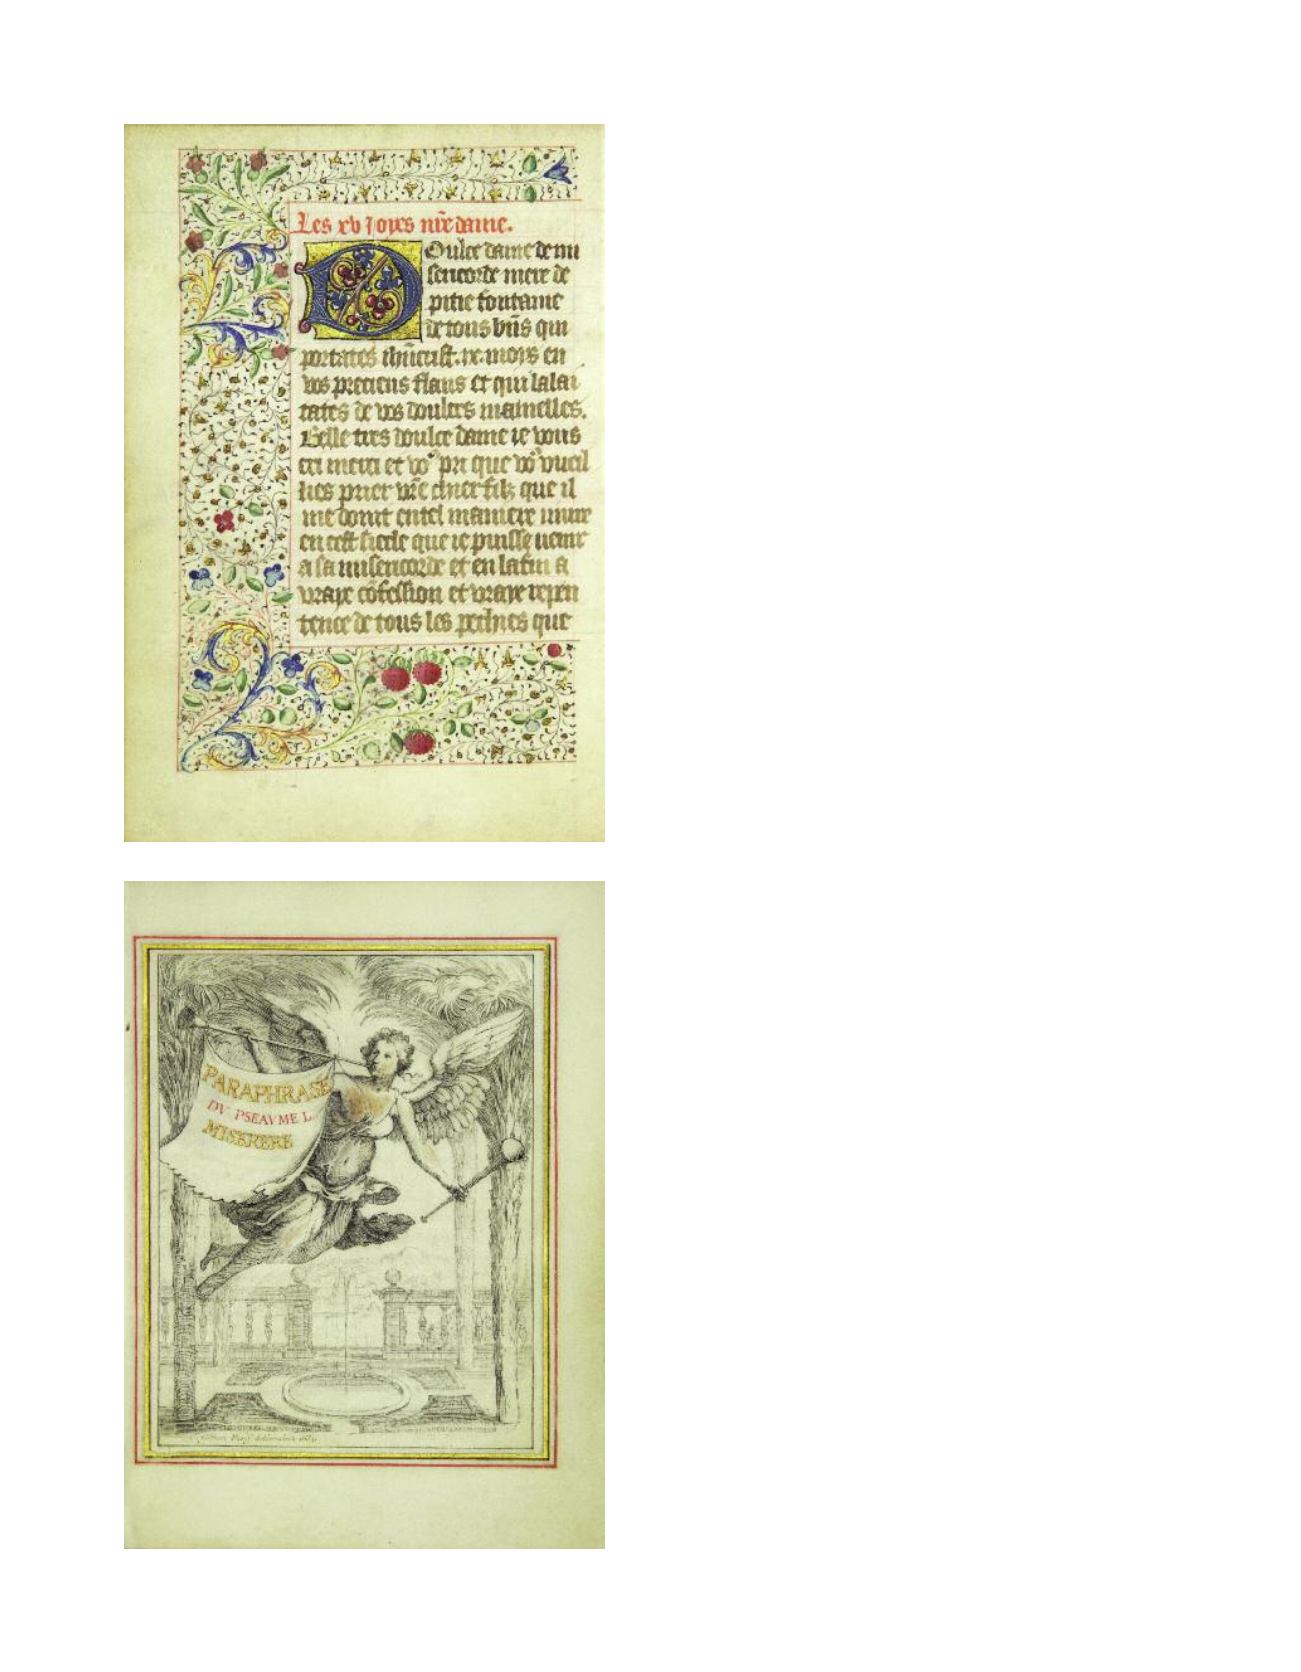 Les xv Joyes nr̄e dame.
Doulce dame de mi
sericorde mere de
pitie fontaine
de tous biēs qui
portates ihūcrist .ix. mois en
vos precieus flans et qui lalai
tates de vos doulces mamelles.
Belle tres doulce dame ie vous
cri merci et voˢ pri que voˢ vueil
lies prier vr̄e chier filz que il
me doint en tel maniere viure
en cest siecle que ie puisse uenir
a sa misericorde et en la fin a
vraye cōfession et vraye repen
tence de tous les pechies que
PARAPHRASE
DV PSEAVME L
MISERERE